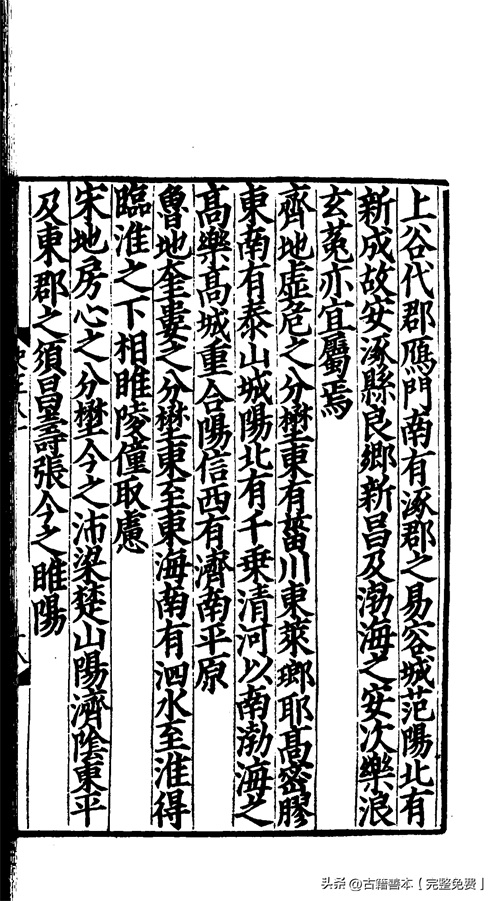 上谷代郡鴈門南有涿郡之易容城范陽北有
新成故安涿縣良鄉新昌及渤海之安次樂浪
玄菟亦宜屬焉
齊地虛危之分壄東有菑川東萊瑯耶髙密膠
東南有泰山城陽北有千乗清河以南渤海之
髙樂髙城重合陽信西有濟南平原
魯地奎婁之分壄東至東海南有泗水至淮得
臨淮之下相睢陵僮取慮
宋地房心之分壄今之沛梁楚山陽濟陰東平
及東郡之須昌壽張今之睢陽
头条 @古籍善本【完整免费】